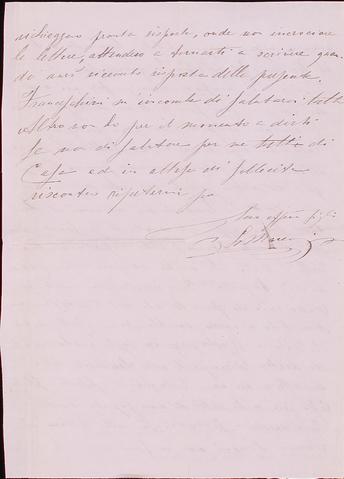 richieggono pronta risposta, onde non incrociare
le lettere, attenderò a tornarti a scrivere quan-
do avrò riscontro risposta della presente.
Franceschini m' incombe di salutarvi tutti
Altro non ho per il momento a dirti
se non di salutare per me tutti di
Casa ed in attesa di sollecito
riscontro ripetermi
Suo figlio